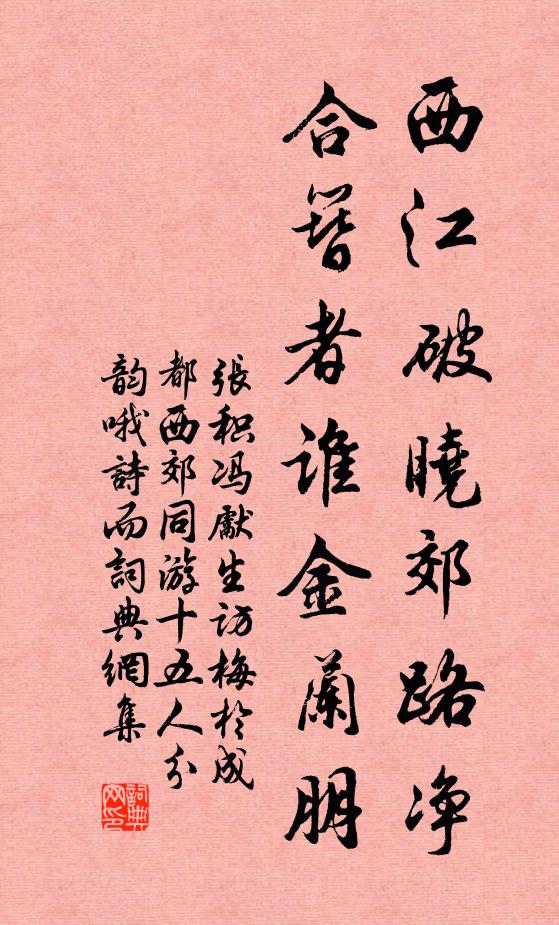 西江破曉郊路净
合簪者谁金蘭朋
張积冯獻生访梅於成
都西郊同游十五人分
韵哦詩而詞典網集
詞典
网印